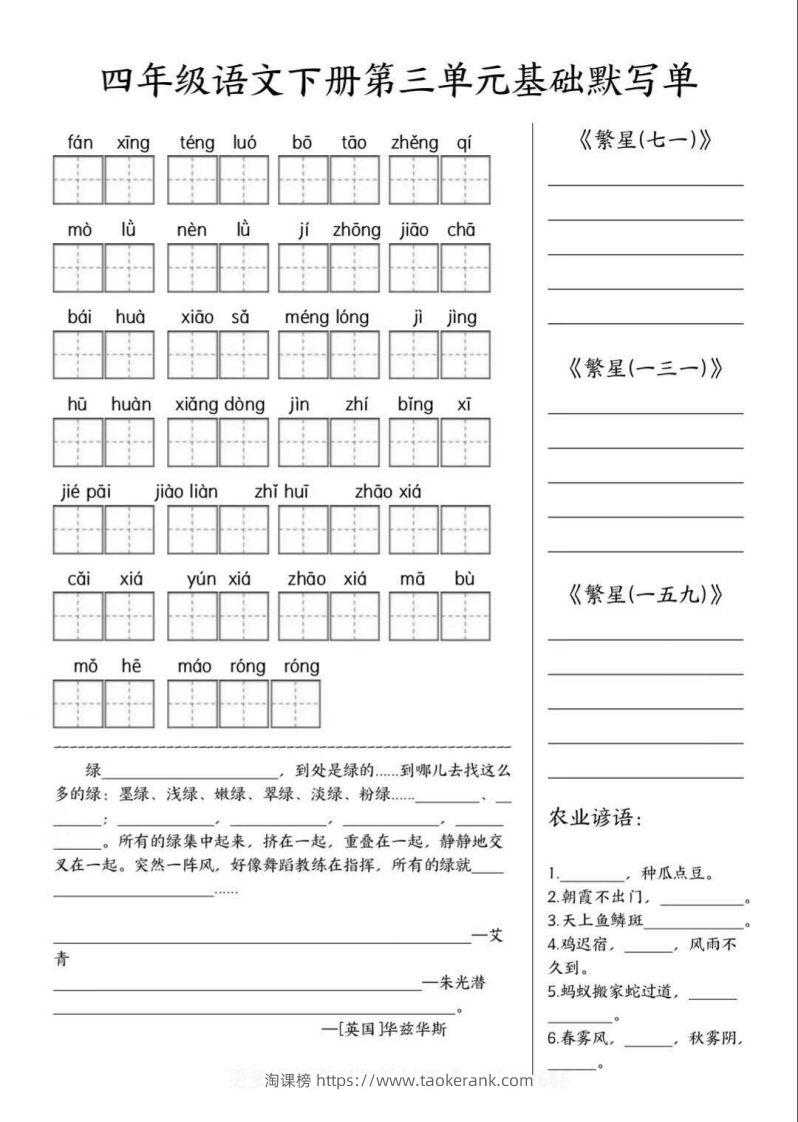 四年级语文下册第三单元基础默写单
fán xīng téng luó bō tāo zhěng qí
mò lǜ nèn lǜ jí zhōng jiāo chā
bái huà xiāo sǎ méng lóng jì jìng
hū huàn xiǎng dòng jìn zhí bǐng xī
jié pāi jiào liàn zhǐ huī zhāo xiá
cǎi xiá yún xiá zhāo xiá mā bù
mǒ hē máo róng róng
绿____________________，到处是绿的......到哪儿去找这么
多的绿：墨绿、浅绿、嫩绿、翠绿、淡绿、粉绿......________、__
______；____________，____________，____________，______
______。所有的绿集中起来，挤在一起，重叠在一起，静静地交
叉在一起。突然一阵风，好像舞蹈教练在指挥，所有的绿就____
____________________......
________________________________________—艾
青
________________________________________—朱光潜
________________________________________。
—[英国]华兹华斯
《繁星(七一)》
《繁星(一三一)》
《繁星(一五九)》
农业谚语：
1.________，种瓜点豆。
2.朝霞不出门，__________。
3.天上鱼鳞斑____________。
4.鸡迟宿，______，风雨不
久到。
5.蚂蚁搬家蛇过道，______
________。
6.春雾风，______，秋雾阴，
______。
淘课榜 https://www.taokerank.com